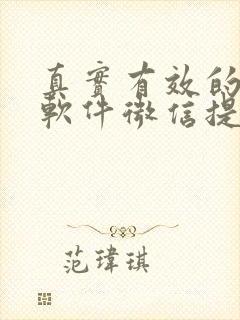 真實有效的
軟件微信提
范瑋琪